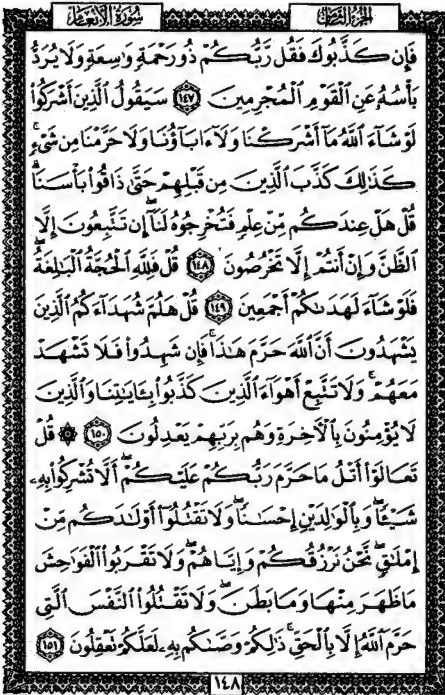 سُورَةُ الأَنْعَامِ الجزء الثامن
فَإِن كَذَّبُوكَ فَقُل رَّبُّكُمْ ذُو رَحْمَةٍ وَٰسِعَةٍ وَلَا يُرَدُّ
بَأْسُهُۥ عَنِ ٱلْقَوْمِ ٱلْمُجْرِمِينَ ١٤٧ سَيَقُولُ ٱلَّذِينَ أَشْرَكُوا۟
لَوْ شَآءَ ٱللَّهُ مَآ أَشْرَكْنَا وَلَآ ءَابَآؤُنَا وَلَا حَرَّمْنَا مِن شَىْءٍ ۚ
كَذَٰلِكَ كَذَّبَ ٱلَّذِينَ مِن قَبْلِهِمْ حَتَّىٰ ذَاقُوا۟ بَأْسَنَا ۗ
قُلْ هَلْ عِندَكُم مِّنْ عِلْمٍ فَتُخْرِجُوهُ لَنَآ ۖ إِن تَتَّبِعُونَ إِلَّا
ٱلظَّنَّ وَإِنْ أَنتُمْ إِلَّا تَخْرُصُونَ ١٤٨ قُلْ فَلِلَّهِ ٱلْحُجَّةُ ٱلْبَٰلِغَةُ ۖ
فَلَوْ شَآءَ لَهَدَىٰكُمْ أَجْمَعِينَ ١٤٩ قُلْ هَلُمَّ شُهَدَآءَكُمُ ٱلَّذِينَ
يَشْهَدُونَ أَنَّ ٱللَّهَ حَرَّمَ هَٰذَا ۖ فَإِن شَهِدُوا۟ فَلَا تَشْهَدْ
مَعَهُمْ ۚ وَلَا تَتَّبِعْ أَهْوَآءَ ٱلَّذِينَ كَذَّبُوا۟ بِـَٔايَٰتِنَا وَٱلَّذِينَ
لَا يُؤْمِنُونَ بِٱلْـَٔاخِرَةِ وَهُم بِرَبِّهِمْ يَعْدِلُونَ ١٥٠ ۞ قُلْ
تَعَالَوْا۟ أَتْلُ مَا حَرَّمَ رَبُّكُمْ عَلَيْكُمْ ۖ أَلَّا تُشْرِكُوا۟ بِهِۦ
شَيْـًٔا ۖ وَبِٱلْوَٰلِدَيْنِ إِحْسَٰنًا ۖ وَلَا تَقْتُلُوٓا۟ أَوْلَٰدَكُم مِّنْ
إِمْلَٰقٍ ۖ نَّحْنُ نَرْزُقُكُمْ وَإِيَّاهُمْ ۖ وَلَا تَقْرَبُوا۟ ٱلْفَوَٰحِشَ
مَا ظَهَرَ مِنْهَا وَمَا بَطَنَ ۖ وَلَا تَقْتُلُوا۟ ٱلنَّفْسَ ٱلَّتِى
حَرَّمَ ٱللَّهُ إِلَّا بِٱلْحَقِّ ۚ ذَٰلِكُمْ وَصَّىٰكُم بِهِۦ لَعَلَّكُمْ تَعْقِلُونَ ١٥١
١٤٨